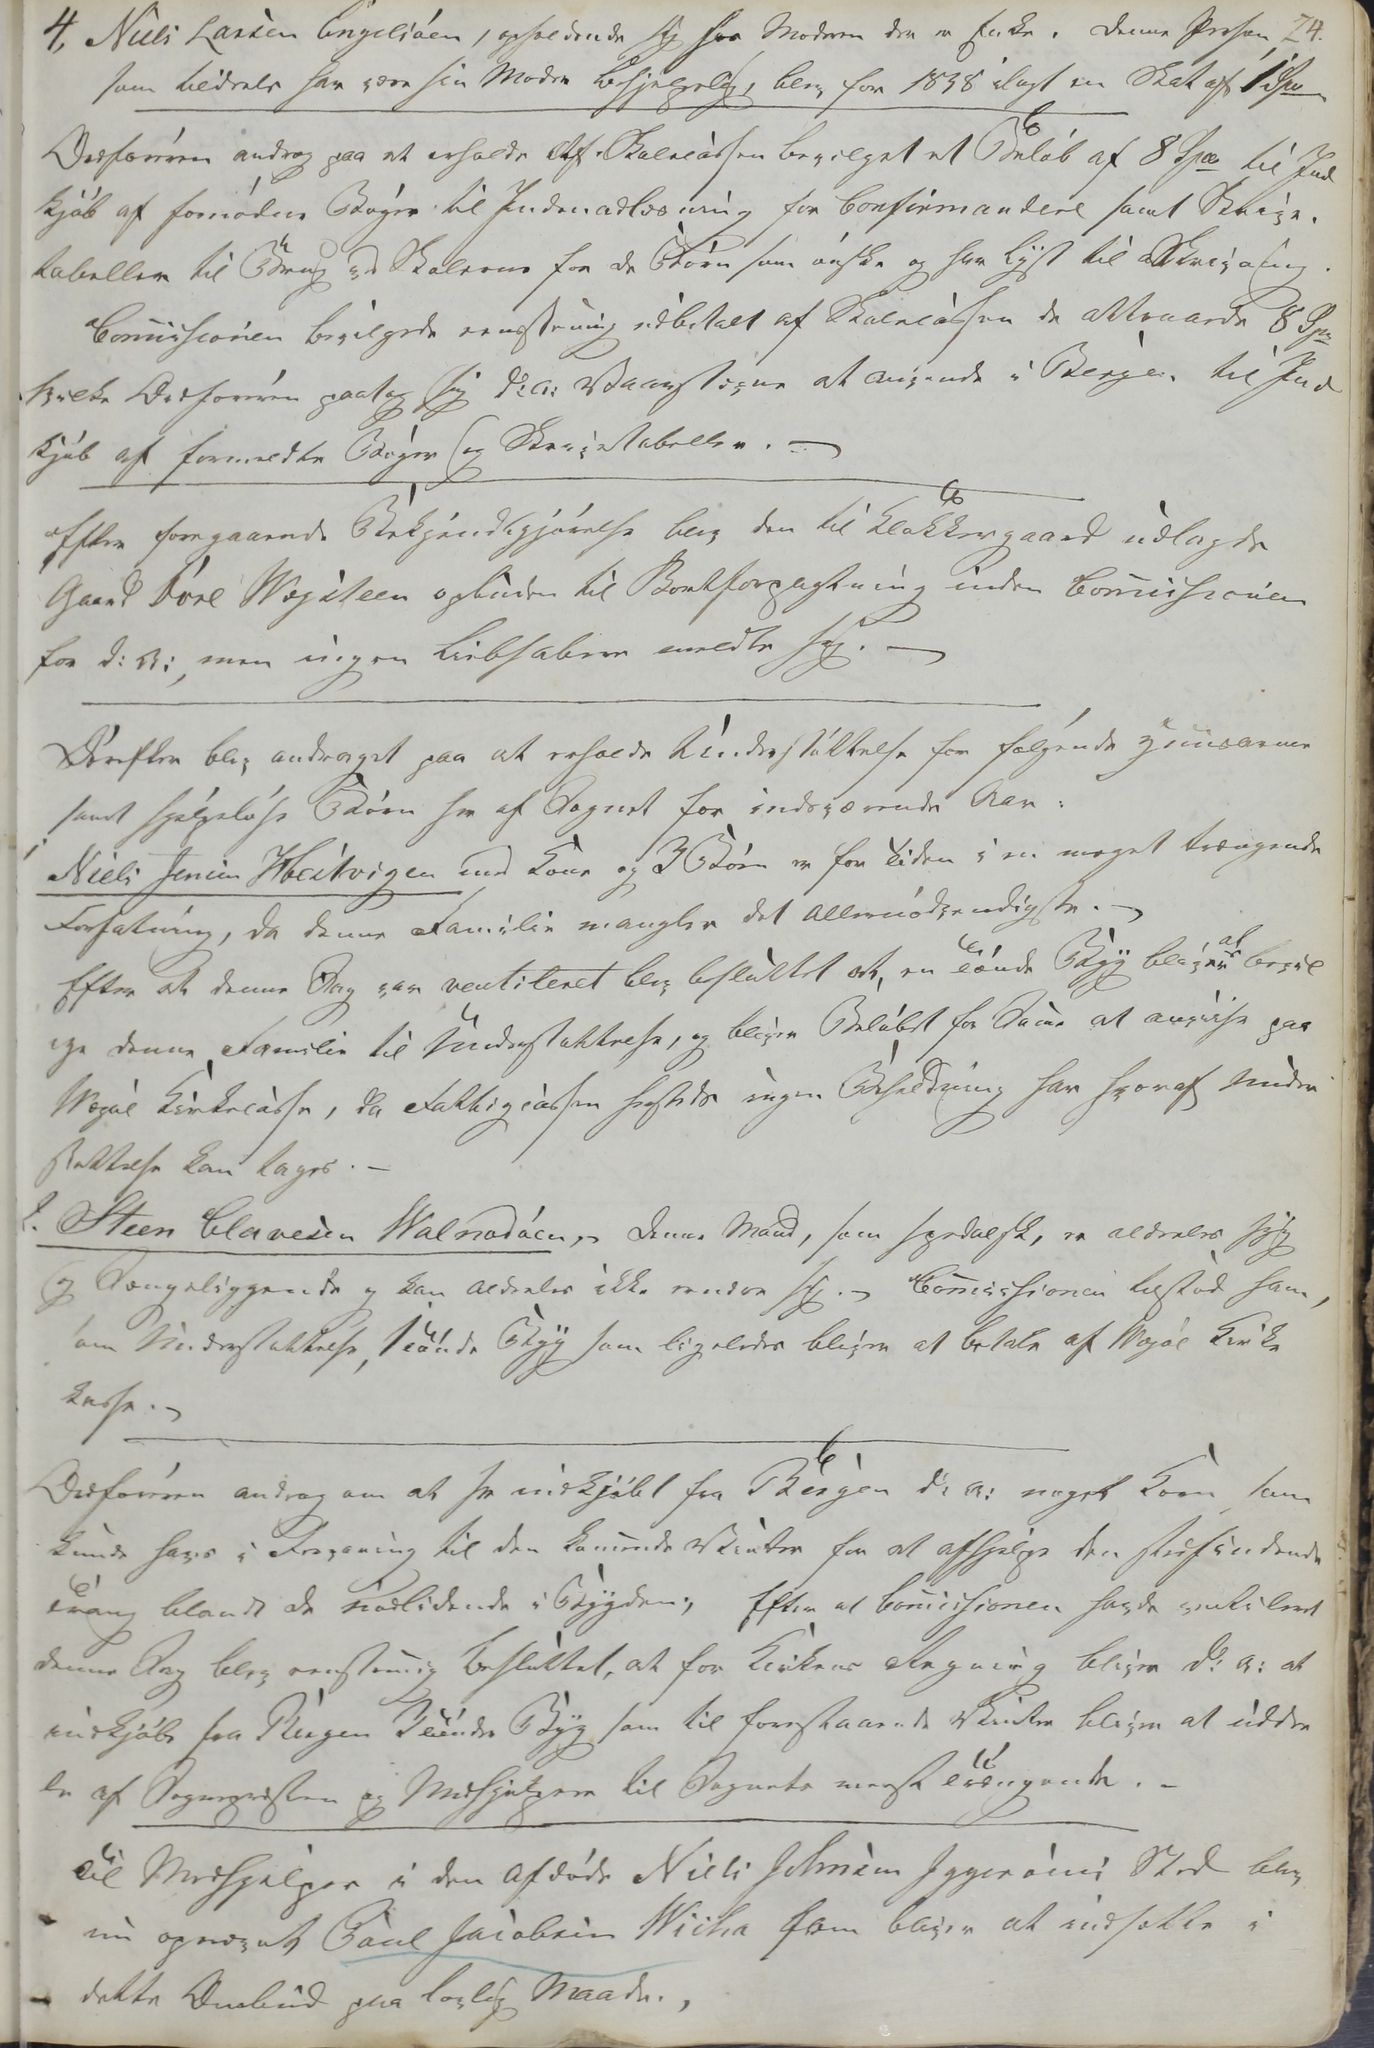 4, Niels Larsen Engeliöen, opholdende sig hos Moderen der er Enke. Denne Person, 24.
som tildeels har være sin Moder behjelpelig, blev for 1838 ilagt en Skat af 1 Spe
Ordføreren androg paa at erholde Af Skolecassen bevilget et Beløb af 8 Spe til Ind
kjøb af fornødne Bøger til Indenadlæsning for Confirmandere samt Skrive.
tabeller til Brug ved Skolerne for de Børn som ønske og har Lyst til Skrivning.
Commissionen bevilgede eenstemmig udbetalt af Skolecassen de attraaede 8 Spe
hvilke Ordføreren paatog sig d: A: Vaarstævne at anvende i Bergen til Ind
kjøb af formeldte Bøger og Skrivetabeller. —
Efter foregaaende Bekjendtgjørelse blev den til Klokkergaard udlagde
Gaard Tore Wægsteen opbuden til Bortforpagtning inden Commissionen
for d: A:, men ingen Liebhabere meldte sig. —
Derefter blev andraget paa at erholde Understøttelse for følgende Huusarme
samt hjelpeløse Børn her af Sognet for indeværende Aar:
1. Niels Jensen Hestvigen med Kone og 3 Børn er for Tiden i en meget trængende
Forfatning, da denne Familie mangler det Allernødvendigste. —
Efter at denne Sag var ventileret blev besluttet at, en Tønde Byg bliver at bevil
ge denne Familie til Understøttelse, og bliver Beløbet for Samme at anvise paa
Wægøe Kirkecasse, da Fattigcassen hersteds ingen Beholdning har hvoraf Under
støttelse kan tages. —
2. Steen Clavesen Walnodöen, denne Mand, som spedalsk, er aldeles syg
og Sængeliggende og kan aldeles ikke nedre sig. — Commissionen tilstod ham,
som Understøttelse, 1 Tønde Byg som ligeledes bliver at betale af Wægøe Kirke
kasse. —
Ordføreren androg om at her indkjøbt fra Bergen d: A: noget Korn som
kunde haves i Forvaring til den kommende Vinter for at afhjelpe den stedfindende
Trang blandt de nødlidende i Bygden; Efter at Commissionen havde ventileret
denne Sag blev eenstemmig besluttet, at for Kirkens Regning bliver d: A: at
indkjøbe fra Bergen 3 Tønder Byg som til forestaaende Vinter bliver at uddee
le af Sognepræsten og Medhjelpere til Sognets meest Trængende. —
Til Medhjelper i den afdøde Niels Johnsen Iggeröens Sted blev
nu opnævnt Poul Jacobsen Wicha som bliver at indsætte i
dette Ombud paa lovlig Maade.,